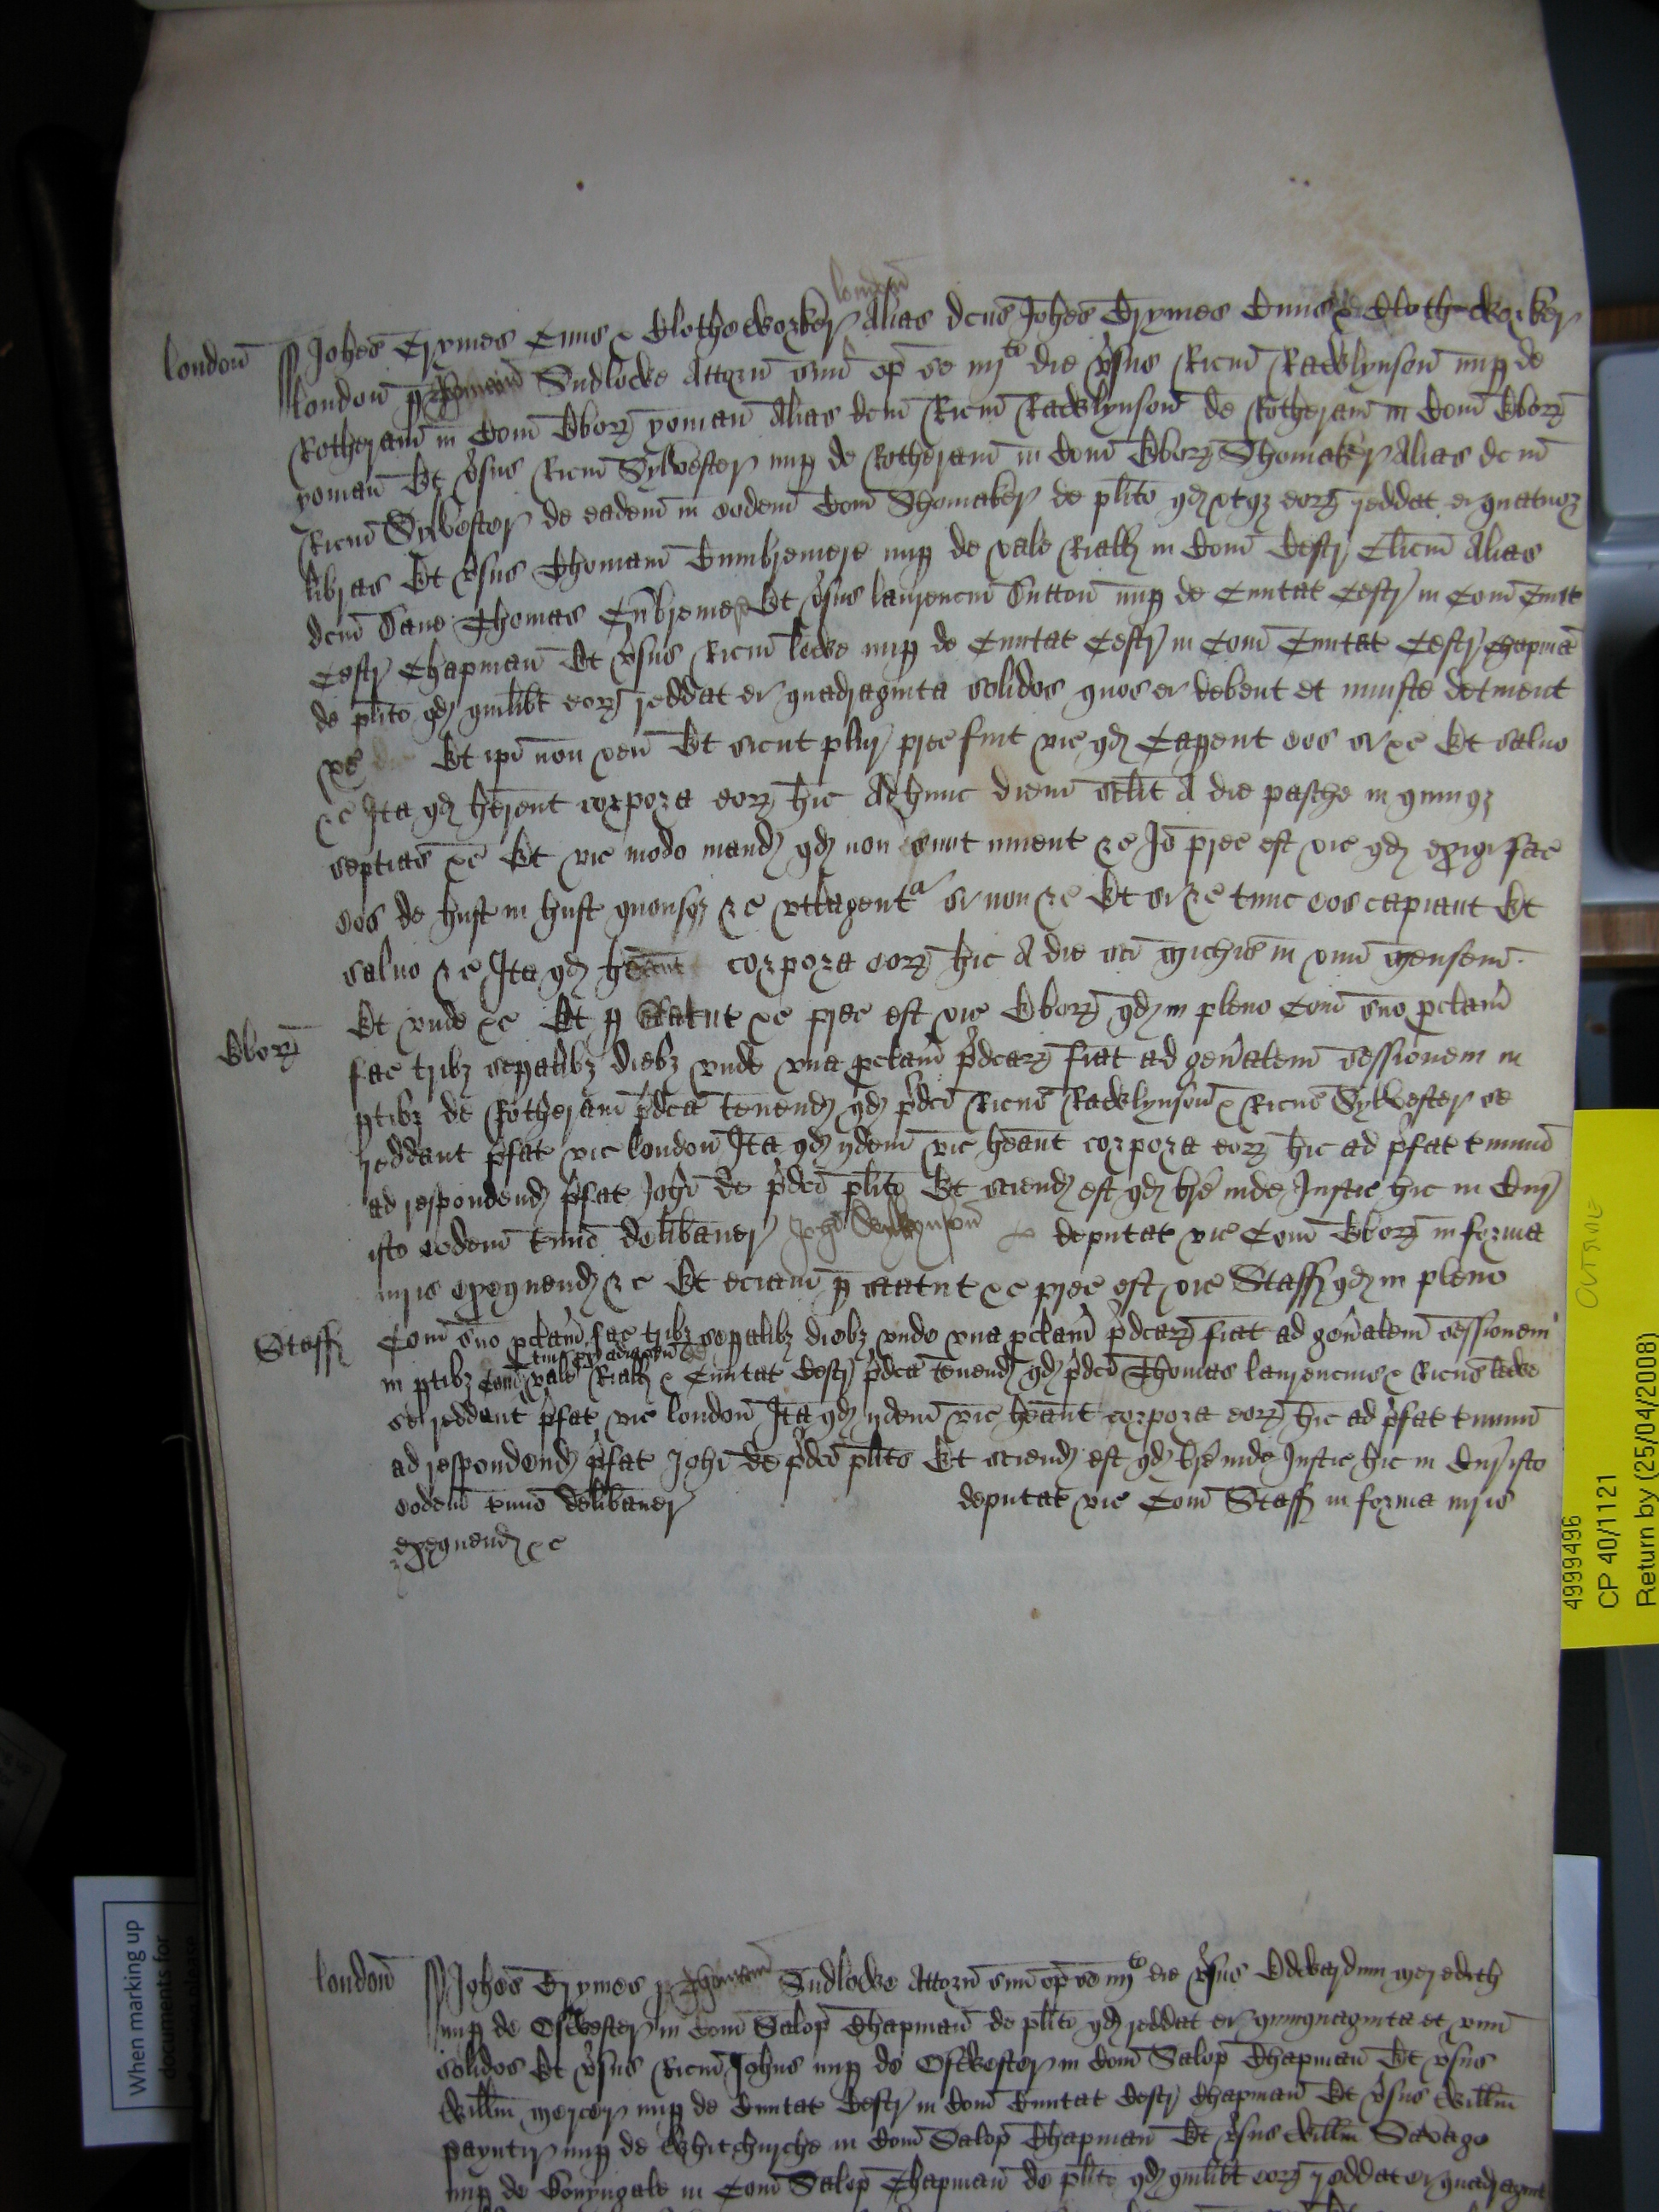 londoñ
londoñ Johes Grymes Ciuis & Clotheworker Alias dcus Johes Grymes Ciuis & Clothworker
londoñ p Sudlocke Attorñ suũ op se iiijto die vsus Ricm Rawlynson nup de
Rotheram in Com Ebor yoman Alias dcm Ricm Rawlynson de Rotheram in Com Ebor
yoman Et vsus Ricm Sylvester nup de Rotheram in Com Ebor Shomaker Alias dcm
Ricm Sylvester de eadem in eodem Com Shomaker de plito qd vtqz eorz reddat ei quatuor
libras Et vsus Thomam Cumbremere nup de vale Riall in Com Cestr Clicm Alias
dcm Thomas Cũbremer Et vsus laurencm Sutton nup de Ciuitat Cestr in Com Ciuit
Cestr Chapman Et vsus Ricm lecke nup de Ciuitat Cestr in Com Ciuitat Cestr Chapmã
de plito qd quilibt eorz reddat ei quadraginta solidos quos ei debent et iniuste detinent
&c Et ipi non veñ Et sicut plur prec fuit vic qd Capent eos si &c Et saluo
&c Ita qd herent corpora eorz hic Ad hunc diem scilt A die pasche in quinqz
septias &c Et vic modo mand qd non sunt inuent &c Jo prec est vic qd exigi fac
eos de hust in hust quousqz &c vtlagent si non &c Et si &c tunc eos capiant Et
saluo &c Ita qd heant corpora eorz hic A die sci Michis in vnũ Mensem
Ebor Et vnde &c Et p statut &c prec est vic Ebor qd in pleno Com suo pclam
fac tribz sepalibz diebz vnde vna pclam pdcarz fiat ad genalem sessionem in
ptibz de Rotheram pdca tenend qd pdci Ricus Rawlynson & Ricus Sylvester se
reddant pfat vic london Ita qd ijdem vic heant corpora eorz hic ad pfat tminũ
ad respondend pfat Johi de pdco plito Et sciend est qd bre inde Justic hic in Cur
isto eodem tmio delibauer deputat vic Com Ebor in forma
iuris exequend &c Et eciam p statut &c prec est vic Staff qd in pleno
Staff Com suo pclam fac tribz sepalibz diebz vnde vna pclam pdcarz fiat ad genalem sessionem
in ptibz vale Riall & Ciuitat Cestr pdca tenend qd pdci Thomas laurencius & Ricus lecke
se reddant pfat vic london Ita qd ijdem vic heant corpora eorz hic ad pfat tminũ
ad respondend pfat Johi de pdco plito Et sciend est qd bre inde Justic hic in Cur isto
eodem tmio delibauer deputat vic Com Staff in forma iuris
exequend &c
londoñ Johes Grymes p Sudlocke Attorñ suũ op se iiijto die vsus Edwardum Meredith
nup de Oswester in Com Salop Chapman de plito qd reddat ei quinquaginta et vnũ
solidos Et vsus Ricm Johns nup de Oswester in Com Salop Chapman Et vsus
Willm Mercer nup de Ciuitat Cestr in Com Ciuitat Cestr Chapman Et vsus Willm
payntr nup de Whitchurche in Com Salop Chapman Et vsus Willm Savage
nup de in Com Salop Chapman de plito qd quilibt eorz reddat ei quadragint
When marking up
documents for
please
OUTSIZE
4999496
CP 40/1121
Return by (25/04/2008)